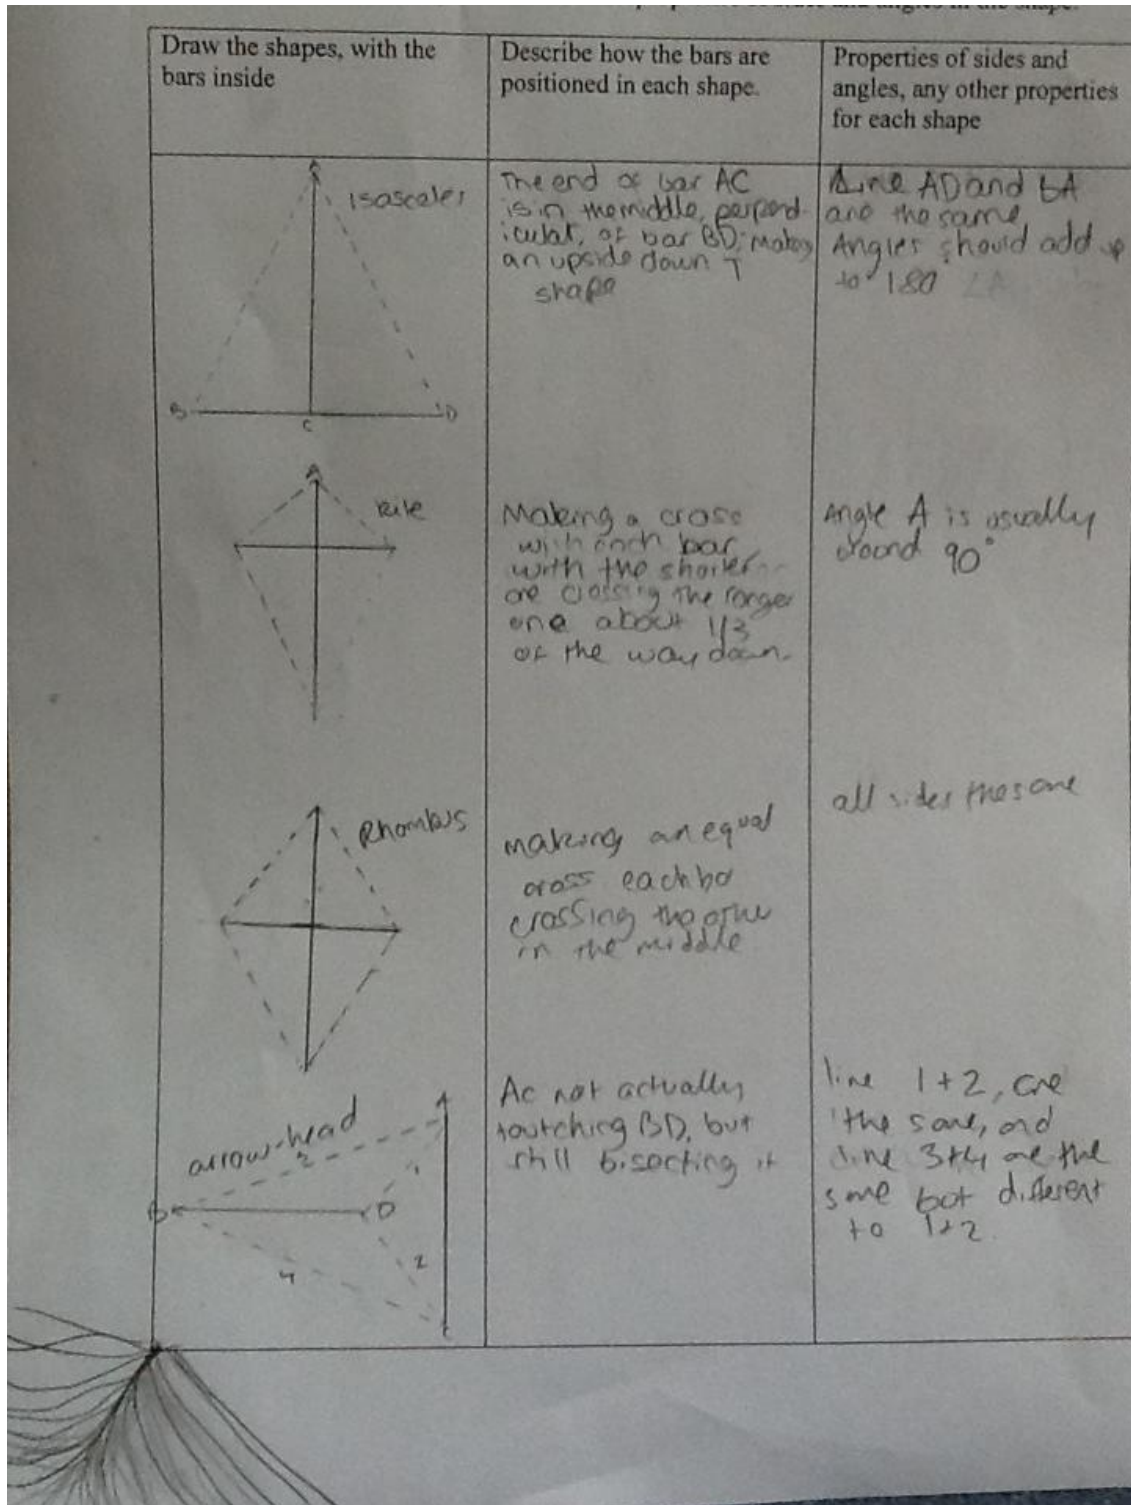 Draw the shapes, with the
bars inside
Describe how the bars are
positioned in each shape.
Properties of sides and
angles, any other properties
for each shape
A
isascales
B
C
D
The end of bar AC
is in the middle, perpend-
icular, of bar BD, making
an upside down T
shape
Line AD and BA
are the same
Angles should add up
to 180
A
kite
Making a cross
with each bar
with the shorter
one crossing the longer
one about 1/3
of the way down.
Angle A is usually
around 90°
Rhombus
making an equal
cross each ba
crossing the other
in the middle
all sides the same
arrow-head
A
B
D
C
1
2
4
Ac not actually
toutching BD, but
still bisecting it
line 1+2, are
the same, and
line 3+4 are the
same but different
to 1+2.